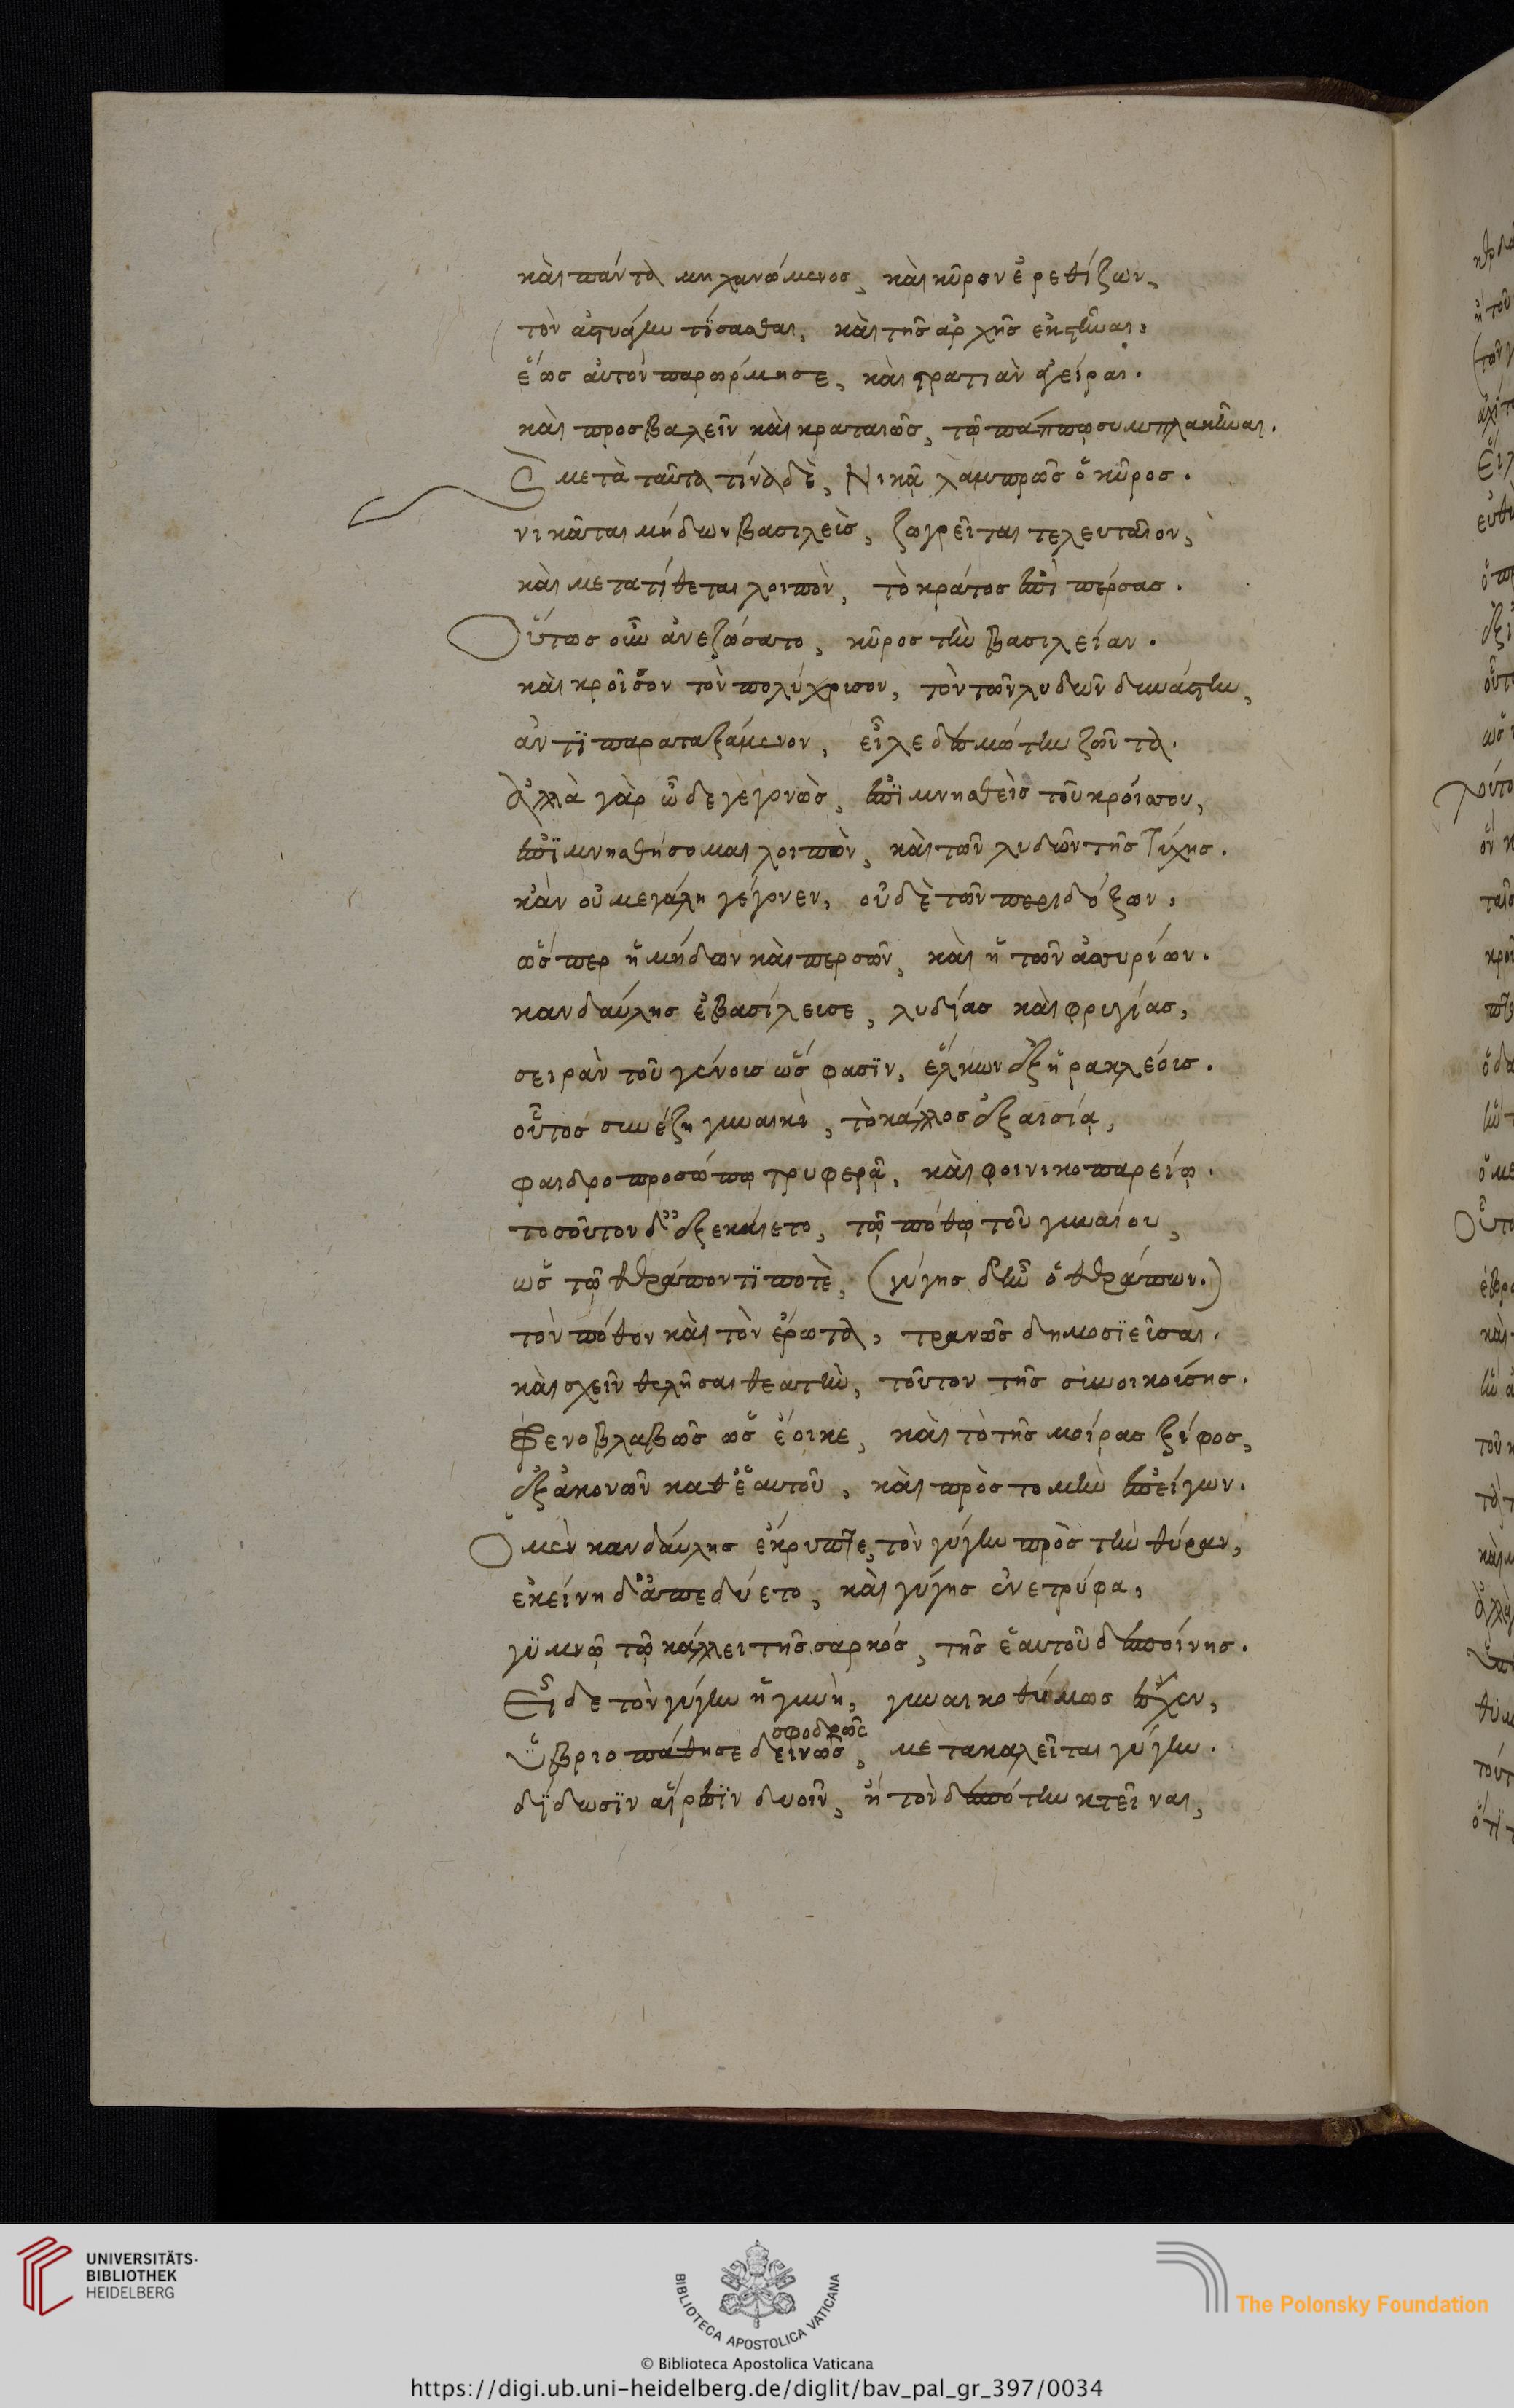 καὶ πάντα μηχανώμενος, καὶ κῦρον ἐρεθίζων,
τὸν ἀστυάγην τίσασθαι, καὶ τῆς ἀρχῆς ἐκστῆναι,
ἕως αὐτὸν παρώρμησε, καὶ στρατιὰν ἀγεῖραι.
καὶ προσβαλεῖν καὶ κραταιῶς, τῷ πάππῳ συμπλακῆναι.
μετὰ ταῦτα τίνα δὲ, Νικᾷ λαμπρῶς ὁ κῦρος.
νικᾶται μήδων βασιλεὺς, ζωγρεῖται τελευταῖον,
καὶ μετατίθεται λοιπὸν, τὸ κράτος ἐπὶ πέρσας.
Οὕτως οὖν ἀνεζώσατο, κῦρος τὴν βασιλείαν.
καὶ κροῖσον τὸν πολύχρυσον, τὸν τῶν λυδῶν δυνάστην,
ἀντιπαραταξάμενον, εἷλε δεσμώτην ζῶντα.
Ἀλλὰ γὰρ ὧδε γεγονὼς, ἐπιμνησθεὶς τοῦ κροίσου,
ἐπιμνησθήσομαι λοιπὸν, καὶ τῶν λυδῶν τῆς τύχης.
κἂν οὐ μεγάλη γέγονεν, οὐδὲ τῶν περιδόξων,
ὥσπερ ἡ μήδων καὶ περσῶν, καὶ ἡ τῶν ἀσσυρίων.
κανδαύλης ἐβασίλευσε, λυδίας καὶ φρυγίας,
σειρὰν τοῦ γένους ὥς φασιν, ἕλκων ἐξ ἡρακλέους.
οὗτος συνέζη γυναικὶ, τὸ κάλλος ἐξαισίᾳ,
φαιδροπροσώπῳ τρυφερᾷ, καὶ φοινικοπαρείῳ.
τοσοῦτον δ' ἐξεκαίετο, τῷ πόθῳ τοῦ γυναίου,
ὡς τῷ θεράποντί ποτὲ, (γύγης δ' ἦν ὁ θεράπων.)
τὸν πόθον καὶ τὸν ἔρωτα, τρανῶς δημοσιεῦσαι.
καὶ σχεῖν θελῆσαι θεατὴν, τοῦτον τῆς συνοικούσης.
Φρενοβλαβῶς ὡς ἔοικε, καὶ τὸ τῆς μοίρας ξίφος,
ἐξακονῶν καθ' ἑαυτοῦ, καὶ πρὸς τομὴν ἐπείγων.
Ὁ μὲν κανδαύλης ἔκρυπτε, τὸν γύγην πρὸς τὴν θύραν,
ἐκείνη δ' ἀπεδύετο, καὶ γύγης ἐνετρύφα,
γυμνῷ τῷ κάλλει τῆς σαρκός, τῆς ἑαυτοῦ δεσποίνης.
Εἶδε τὸν γύγην ἡ γυνὴ, γυναικοθύμως ἔσχεν,
σφοδρῶς
Ὑβριοπάθησε δεινῶς, μετακαλεῖται γύγην.
δίδωσιν αἵρεσιν δυοῖν, ἢ τὸν δεσπότην κτεῖναι,
UNIVERSITÄTS-
BIBLIOTHEK
HEIDELBERG
BIBLIOTECA APOSTOLICA VATICANA
The Polonsky Foundation
© Biblioteca Apostolica Vaticana
https://digi.ub.uni-heidelberg.de/diglit/bav_pal_gr_397/0034